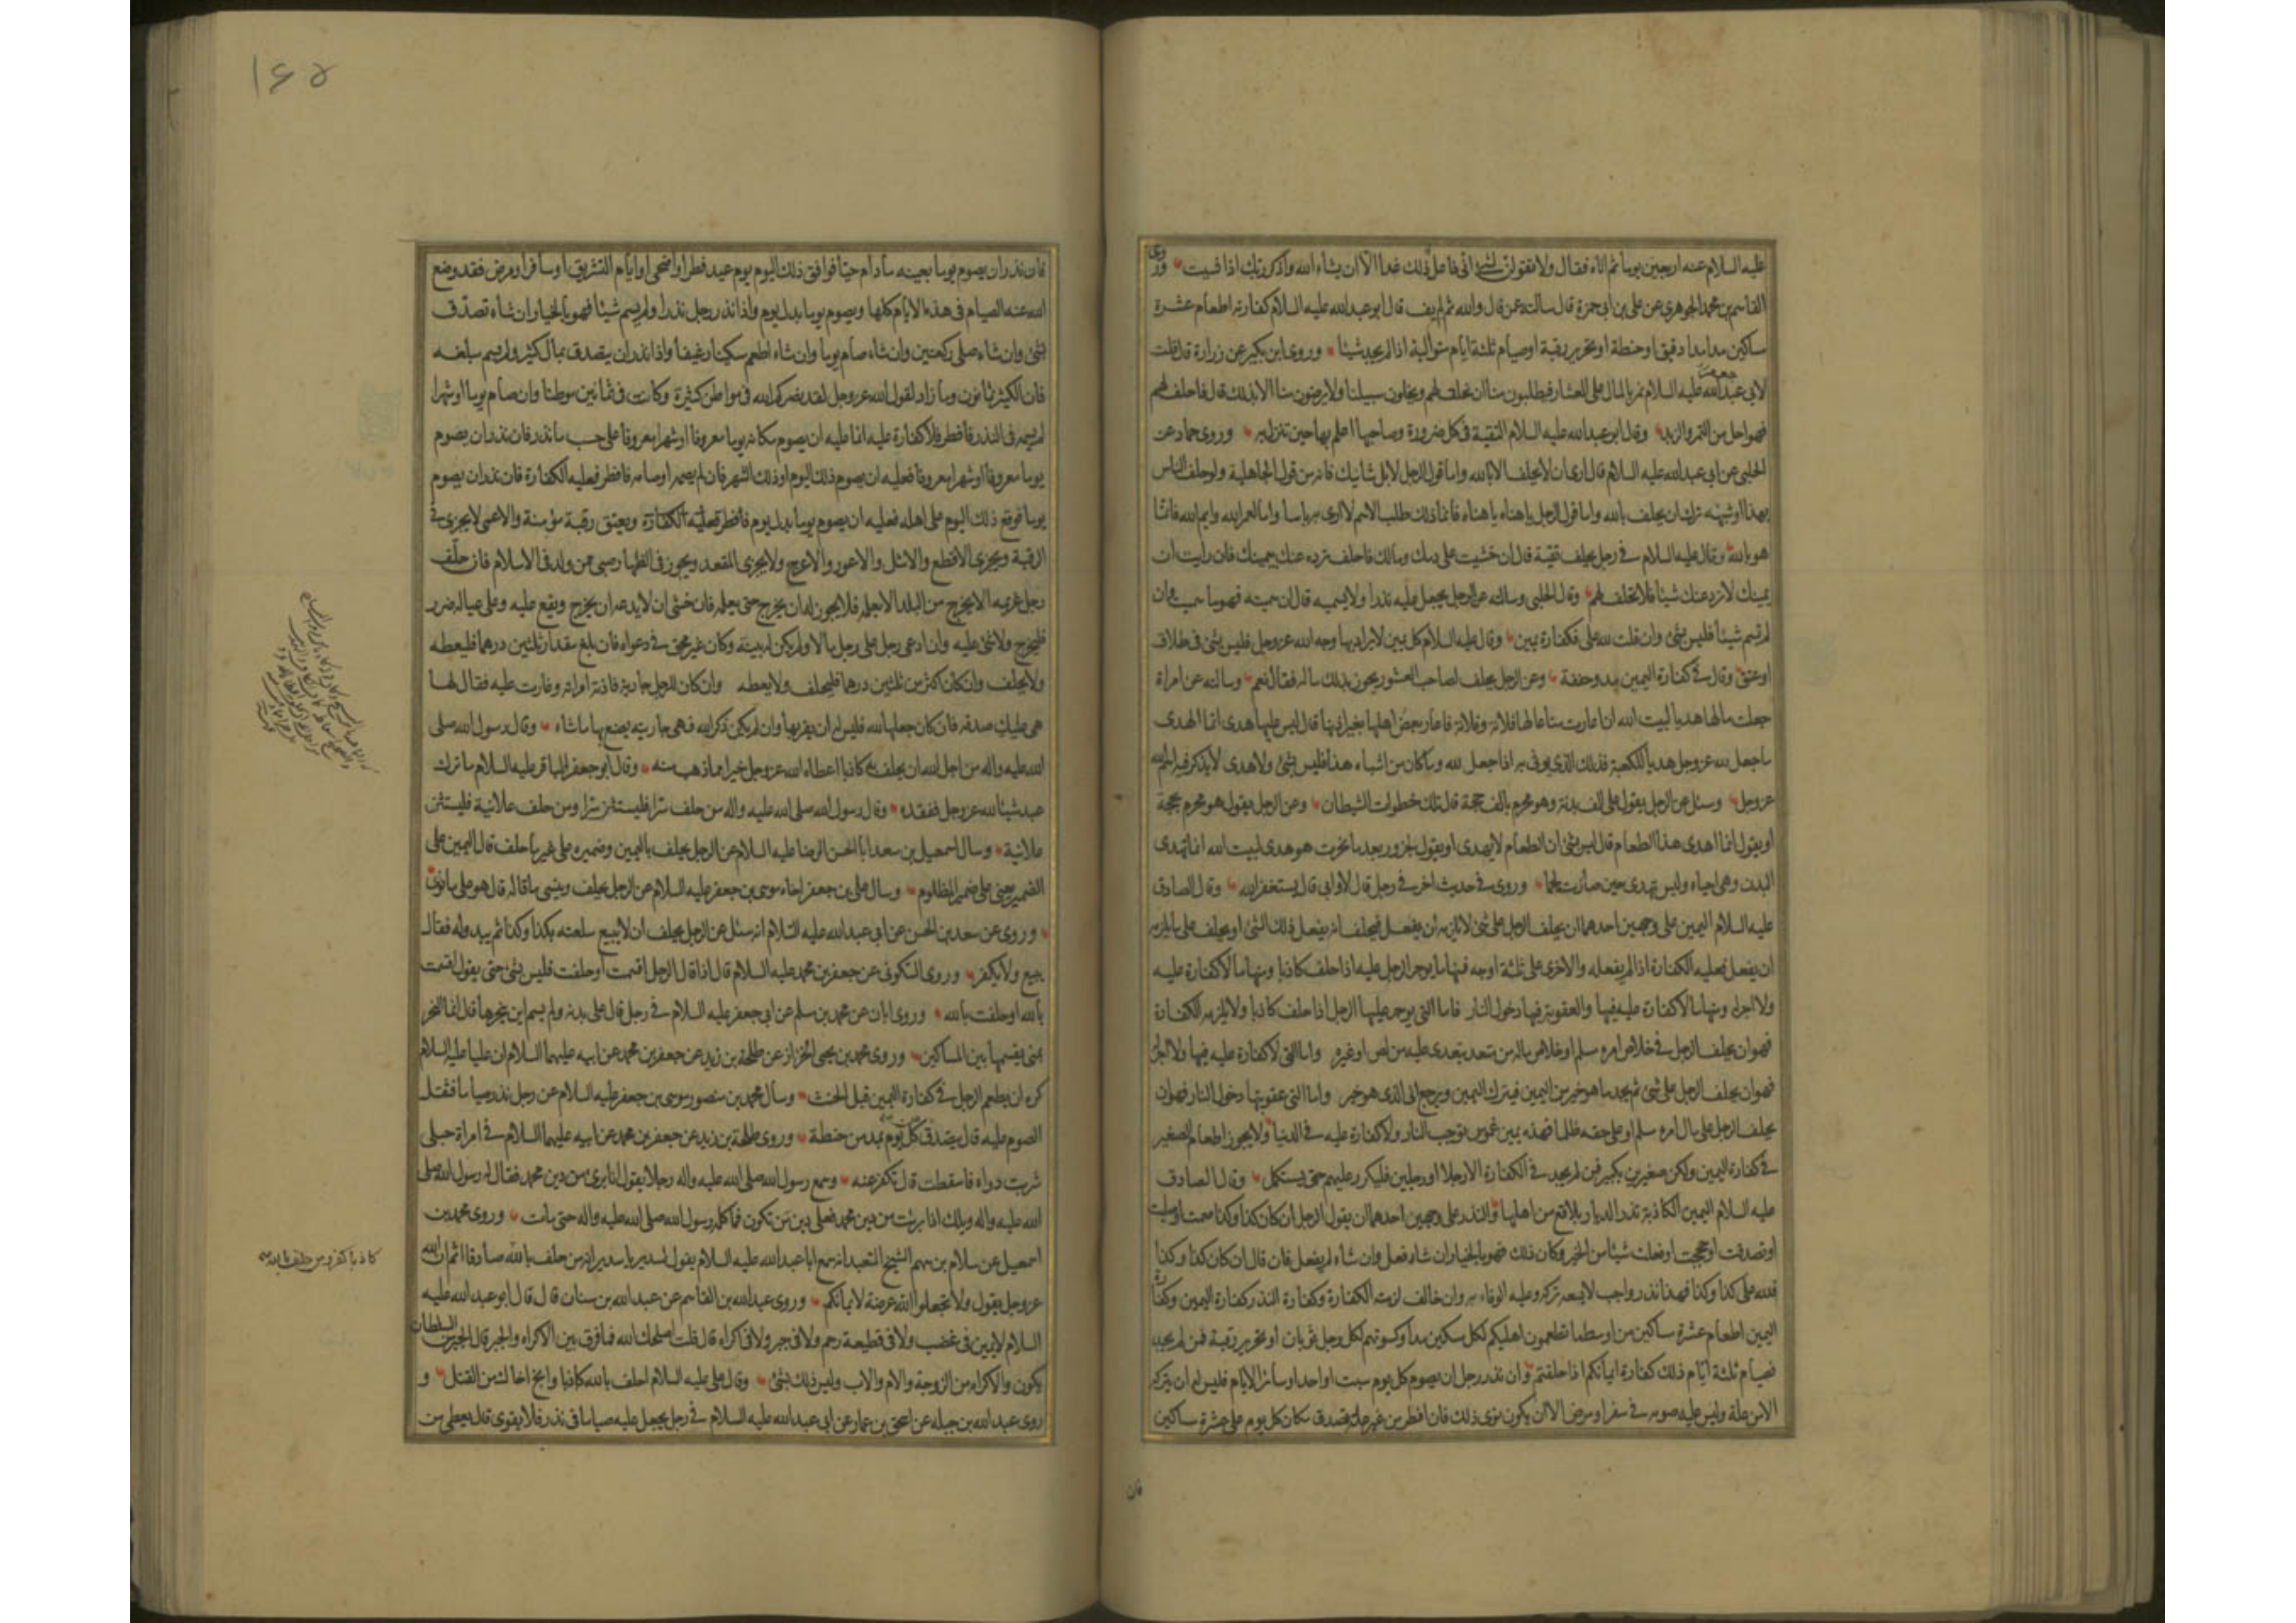 عليه السلام عنه اربعين يوما ثم اتاه فقال ولا تقولن لشئ انى فاعل ذلك غدا الا ان يشاء الله واذكر ربك اذا نسيت وروى
القاسم بن محمد الجوهرى عن على بن ابى حمزة قال سالته عمن قال والله ثم لم يف قال ابو عبد الله عليه السلام كفارته اطعام عشرة
مساكين مدا مدا دقيق او حنطة او تحرير رقبة او صيام ثلثة ايام متوالية اذا لم يجد شيئا وروى ابن بكير عن زرارة قال قلت
لابى عبد الله عليه السلام نمر بالمال على العشار فيطلبون منا ان نحلف لهم ويخلون سبيلنا ولا يرضون منا الا بذلك قال فاحلف لهم
فهو احل من التمر والزبد وقال ابو عبد الله عليه السلام التقية فى كل ضرورة وصاحبها اعلم بها حين تنزل به وروى حماد عن
الحلبى عن ابى عبد الله عليه السلام قال ارى ان لا يحلف الا بالله واما قول الرجل لابل شانيك فانه من قول الجاهلية ولو حلف الناس
بهذا او شبهه ترك ان يحلف بالله واما قول الرجل يا هناه يا هناه فانما ذلك طلب الاسم لا ارى به باسا واما لعمر الله وايم الله فانما
هو بالله وقال عليه السلام فى رجل يحلف تقية قال ان خشيت على دمك ومالك فاحلف ترده عنك بيمينك فان رايت ان
يمينك لا ترد عنك شيئا فلا تحلف لهم وقال الحلبى وسالته عن الرجل يجعل عليه نذرا ولا يسميه قال ان سميته فهو ما سميت وان
لم تسم شيئا فليس بشئ وان قلت لله على فكفارة يمين وقال عليه السلام كل يمين لا يراد بها وجه الله عز وجل فليس بشئ فى طلاق
او عتق وقال فى كفارة اليمين مد وحفنة وعن الرجل يحلف لصاحب العشور يحوز بذلك ماله فقال نعم وسالته عن امراة
جعلت مالها هديا لبيت الله ان اعارت متاعا لها فلانة وفلانة فاعار بعض اهلها بغير اذنها قال ليس عليها هدى انما الهدى
ما جعل لله عز وجل هديا للكعبة فذلك الذى يوفى به اذا جعل لله وما كان من اشباه هذا فليس بشئ ولا هدى لا يذكر فيه اسم الله
عز وجل وسئل عن الرجل يقول على الف بدنة وهو محرم بالف حجة قال تلك خطوات الشيطان وعن الرجل يقول هو محرم بحجة
او يقول انما اهدى هذا الطعام قال ليس بشئ ان الطعام لا يهدى او يقول لجزور بعد ما نحرت هو هدى لبيت الله انما تهدى
البدن وهى احياء وليس تهدى حين صارت لحما وروى فى حديث اخر فى رجل قال لا وابى قال يستغفر الله وقال الصادق
عليه السلام اليمين على وجهين احدهما ان يحلف الرجل على شئ لا يلزمه ان يفعل فيحلف انه يفعل ذلك الشئ او يحلف على ما يلزمه
ان يفعل فعليه الكفارة اذا لم يفعله والاخرى على ثلثة اوجه فمنها ما يوجر الرجل عليه اذا حلف كاذبا ومنها ما لا كفارة عليه
ولا اجر له ومنها ما لا كفارة عليه فيها والعقوبة فيها دخول النار فاما التى يوجر عليها الرجل اذا حلف كاذبا ولا يلزمه الكفارة
فهو ان يحلف الرجل فى خلاص امرء مسلم او خلاص ماله من متعد يتعدى عليه من لص او غيره واما التى لا كفارة عليه فيها ولا اجر له
فهو ان يحلف الرجل على شئ ثم يجد ما هو خير من اليمين فيترك اليمين ويرجع الى الذى هو خير واما التى عقوبتها دخول النار فهو ان
يحلف الرجل على مال امرء مسلم او على حقه ظلما فهذه يمين غموس توجب النار ولا كفارة عليه فى الدنيا ولا يجوز اطعام الصغير
فى كفارة اليمين ولكن صغيرين بكبير فمن لم يجد فى الكفارة الا رجلا او رجلين فليكرر عليهم حتى يستكمل وقال الصادق
عليه السلام اليمين الكاذبة تذر الديار بلاقع من اهلها والنذر على وجهين احدهما ان يقول الرجل ان كان كذا وكذا صمت او صليت
او تصدقت او حججت او فعلت شيئا من الخير وكان ذلك فهو بالخيار ان شاء فعل وان شاء لم يفعل فان قال ان كان كذا وكذا
فلله على كذا وكذا فهذا نذر واجب لا يسعه تركه وعليه الوفاء به وان خالف لزمته الكفارة وكفارة النذر كفارة اليمين وكفارة
اليمين اطعام عشرة مساكين من اوسط ما تطعمون اهليكم لكل مسكين مد او كسوتهم لكل رجل ثوبان او تحرير رقبة فمن لم يجد
فصيام ثلثة ايام ذلك كفارة ايمانكم اذا حلفتم وان نذر رجل ان يصوم كل يوم سبت او احد او سائر الايام فليس له ان يتركه
الا من علة وليس عليه صومه فى سفر او مرض الا ان يكون نوى ذلك فان افطر من غير علة تصدق مكان كل يوم على عشرة مساكين
فان
١٦٥
فان نذر ان يصوم يوما بعينه ما دام حيا فوافق ذلك اليوم يوم عيد فطر او اضحى او ايام التشريق او سافر او مرض فقد وضع
الله عنه الصيام فى هذه الايام كلها ويصوم يوما بدل يوم واذا نذر رجل نذرا ولم يسم شيئا فهو بالخيار ان شاء تصدق
بشئ وان شاء صلى ركعتين وان شاء صام يوما وان شاء اطعم مسكينا رغيفا واذا نذر ان يتصدق بمال كثير ولم يسم مبلغه
فان الكثير ثمانون وما زاد لقول الله عز وجل لقد نصركم الله فى مواطن كثيرة وكانت ثمانين موطنا وان صام يوما او شهرا
لم يسمه فى النذر فافطر فلا كفارة عليه انما عليه ان يصوم مكانه يوما معروفا او شهرا معروفا على حسب ما نذر فان نذر ان يصوم
يوما معروفا او شهرا معروفا فعليه ان يصوم ذلك اليوم او ذلك الشهر فان لم يصمه او صامه فافطر فعليه الكفارة فان نذر ان يصوم
يوما فوقع ذلك اليوم على اهله فعليه ان يصوم يوما بدل يوم فافطر فعليه الكفارة ويعتق رقبة مؤمنة والاعمى لا يجزى فى
الرقبة ويجزى الاقطع والاشل والاعور والاعرج ولا يجزى المقعد ويجوز فى الظهار صبى ممن ولد فى الاسلام فان حلف
رجل غريمه الا يخرج من البلد الا بعلمه فلا يجوز له ان يخرج حتى يعلمه فان خشى ان لا يدعه ان يخرج ويقع عليه وعلى عياله ضرر
فليخرج ولا شئ عليه وان ادعى رجل على رجل مالا ولم يكن له بينة وكان غير محق فى دعواه فان بلغ مقدار ثلثين درهما فليعطه
ولا يحلف وان كان اكثر من ثلثين درهما فليحلف ولا يعطه وان كان للرجل جارية فاذته امراته وغارت عليه فقال لها
هى عليك صدقة فان كان جعلها لله فليس له ان يقربها وان لم يكن ذكر الله فهى جاريته يصنع بها ما شاء وقال رسول الله صلى
الله عليه واله من اجل الله ان يحلف به كاذبا اعطاه الله عز وجل خيرا مما ذهب منه وقال ابو جعفر الباقر عليه السلام ما ترك
عبد شيئا لله عز وجل ففقده وقال رسول الله صلى الله عليه واله من حلف سرا فليستثن سرا ومن حلف علانية فليستثن
علانية وسال اسمعيل بن سعد ابا الحسن الرضا عليه السلام عن الرجل يحلف باليمين وضميره على غير ما حلف قال اليمين على
الضمير يعنى على ضمير المظلوم وسال على بن جعفر اخاه موسى بن جعفر عليه السلام عن الرجل يحلف وينسى ما قاله قال هو على ما نوى
وروى عن سعد بن الحسن عن ابى عبد الله عليه السلام انه سئل عن الرجل يحلف ان لا يبيع سلعته بكذا وكذا ثم يبدو له فقال
يبيع ولا يكفر وروى السكونى عن جعفر بن محمد عليه السلام قال اذا قال الرجل اقسمت او حلفت فليس بشئ حتى يقول اقسمت
بالله او حلفت بالله وروى ابان عن محمد بن مسلم عن ابى جعفر عليه السلام فى رجل قال على بدنة ولم يسم اين ينحرها قال انما النحر
بمنى يقسمها بين المساكين وروى محمد بن يحيى الخزاز عن طلحة بن زيد عن جعفر بن محمد عن ابيه عليهما السلام ان عليا عليه السلام
كره ان يطعم الرجل فى كفارة اليمين قبل الحنث وسال محمد بن منصور موسى بن جعفر عليه السلام عن رجل نذر صياما فثقل
الصوم عليه قال يتصدق عن كل يوم بمد من حنطة وروى طلحة بن زيد عن جعفر بن محمد عن ابيه عليهما السلام فى امراة حبلى
شربت دواء فاسقطت قال تكفر عنه وسمع رسول الله صلى الله عليه واله رجلا يقول انا برئ من دين محمد فقال له رسول الله صلى
الله عليه واله ويلك اذا برئت من دين محمد فعلى دين من تكون فما كلمه رسول الله صلى الله عليه واله حتى مات وروى محمد بن
اسمعيل عن سلام بن سهم الشيخ المتعبد انه سمع ابا عبد الله عليه السلام يقول لسدير يا سدير انه من حلف بالله صادقا اثم ان الله
كاذبا كفر ومن حلف بالله صح
عز وجل يقول ولا تجعلوا الله عرضة لايمانكم وروى عبد الله بن القاسم عن عبد الله بن سنان قال قال ابو عبد الله عليه
السلام لا يمين فى غضب ولا فى قطيعة رحم ولا فى جبر ولا فى اكراه قال قلت اصلحك الله فما فرق بين الاكراه والجبر قال الجبر من السلطان
يكون والاكراه من الزوجة والام والاب وليس ذلك بشئ وقال على عليه السلام احلف بالله كاذبا وانج اخاك من القتل و
روى عبد الله بن جبله عن اسحق بن عمار عن ابى عبد الله عليه السلام فى رجل يجعل عليه صياما فى نذر فلا يقوى قال يعطى من